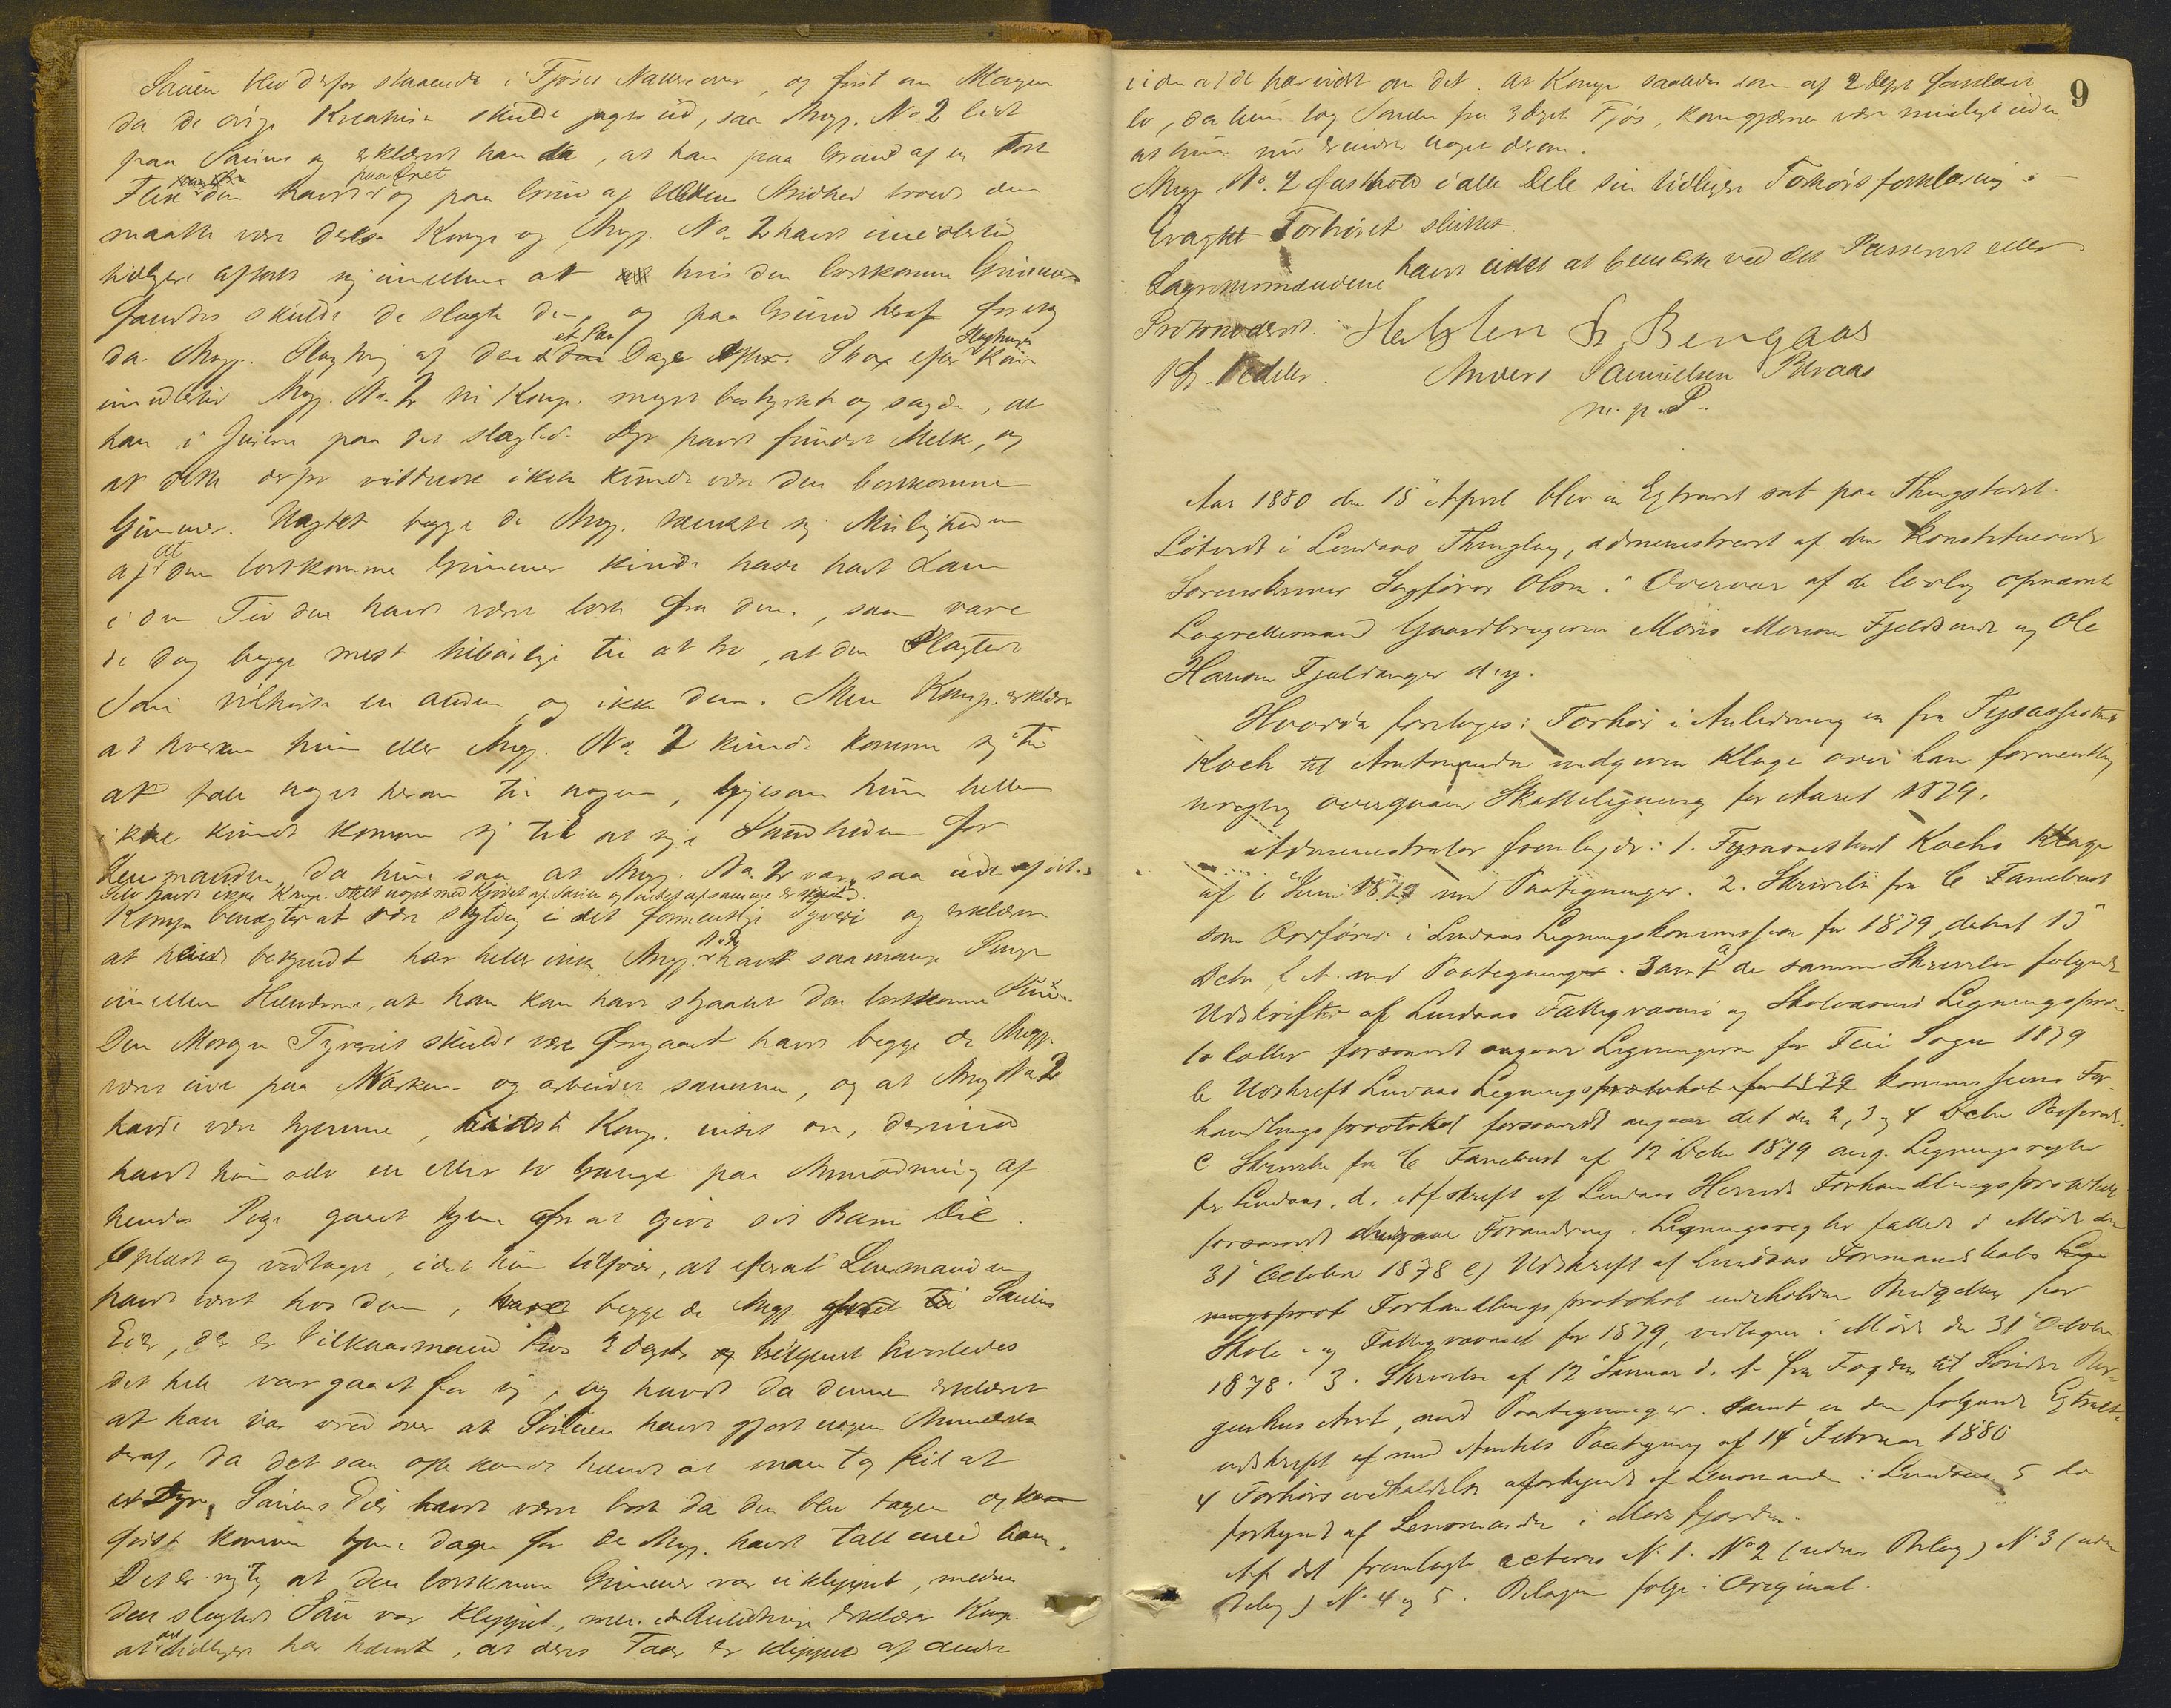 Sauen blev derfor staaende i Fjøset Natten over, og først om Morgen
da de øvrige Kreaturer skulde jages ud, saa Ang. No. 2 lidt
paa Sauen og erklæret han da, at han paa Grund af en sort
Flek den havde paa Øret og paa Grund af Uldens Hvidhed troede den
maatte være deres. Komp. og Ang. No. 2 havde imidlertid
tidligere aftalt sig imellem at hvis den bortkomne Gimmer
fandtes skulde de slagte den, og paa Grund heraf foretog
da Ang. Slagtning af den et Par Dage efter. Strax efter Slagtningen kom
imidlertid Ang. No. 2 til Komp. meget bestyrtet og sagde, at
han i Juret paa det slagtede Dyr havde fundet Melk, og
at dette derfor vistnok ikke kunde være den bortkomne
Gimmer. Uagtet begge de Ang. tænkte sig Muligheden
af at den bortkomne Gimmer kunde have havt Lam
i den Tid den havde været borte fra dem, saa vare
de dog begge mest tilbøielige til at tro, at den slagtede
Sau tilhørte en anden og ikke dem. Men Komp. erklærer
at hverken hun eller Ang. No. 2 kunde komme sig til
at tale noget herom til nogen, ligesom hun heller
ikke kunde komme sig til at sige Sandheden for
Lensmanden, da hun saa at Ang. No. 2 var saa ude af sig.
Selv havde ikke Komp. stelt noget med Kjødet af Sauen og intet af samme er spist.
Komp. benegter at være skyldig i det formentlige Tyveri og erklærer
at hende bekjendt har heller ikke Ang. No. 2 havt saa mange Penge
imellem Hænderne, at han kan have skjaaret den bortkomne
Den Morgen Tyveriet skulde være foregaaet havde begge de Ang.
været ude paa Marken og arbeidet sammen, og at Ang. No. 2
havde været hjemme, vidste Komp. intet om, derimod
havde hun selv en eller to Gange paa Anmodning af
hendes Pige gaaet hjem for at give sit Barn Die.
Oplæst og vedtaget, idet hun tilføier, at efterat Lensmanden
havde været hos dem, havde begge de Ang. gaaet til Sauens
Eier, der er Vilkaarmand hos 3 Dept. og bekjendt hvorledes
det hele var gaaet for sig, og havde da denne erklæret
at han var vred over at Sønnen havde gjort nogen Anmeldelse
deraf, da det saa ofte kunde hænde at man tog feil af
et Dyr. Sauens Eier havde været borte da den blev tagen og
først kommen hjem Dagen før de Ang. havde talt med ham.
Det er rigtig at den bortkomne Gimmer var uklippet, medens
den slagtede Sau var klippet, men i den Anledning erklærer Komp.
at det tidligere har hændt, at deres Faar er klippet af andre
9
uden at de har vidst om det. At Komp. saaledes som af 2 Dept. forklaret
lo, da hun tog Sauen fra 3 Dept. Fjøs, kan gjerne være muligt uden
at hun nu erindrer noget derom.
Ang. No. 2 fastholdt i alle Dele sin tidligere Forhørsforklaring.
Eragtet Forhøret sluttet.
Lagrettemændene havde intet at bemærke ved det Passerede eller
Protokollerede.
Halsten S. Bergaas
Anders Samuelsen Kraas
m. p. P.
Aar 1880 den 15 April blev en Extraret sat paa Thingstedet
i Lindaas Thinglag, administreret af den konstituerede
Sorenskriver Sagfører Olsen i Overvær af de lovlig opnævnte
Lagrettesmænd Gaardbrugerne Mons Monsen Fjeldsende og Ole
Hansen Fjeldanger d. y.
Hvorda foretoges: Forhør i Anledning en fra Fyrassistent
Koch til Amtmanden indgiven Klage over ham formentlig
urigtig overgaaen Skatteligning for Aaret 1879.
Administrator fremlagde: 1. Fyrassistent Kochs Klage
af 6 Juni 1879 med Paategninger. 2. Skrivelse fra C Fanebust
som Ordfører i Lindaas Ligningskommission for 1879, dateret 13
Decbr. f. A. med Paategninger. Samt a, de samme Skrivelse følgende
Udskrifter af Lindaas Fattigvæsens og Skolevæsens Ligningspro-
tokoller forsaavidt angaar Ligningerne for Fei Sogn 1879
b Udskrift Lindaas Ligningsprotokol for 1879 kommissions For-
handlingsprotokol forsaavidt angaar det den 2, 3 og 4 Decbr Passerede.
c Skrivelse fra C Fanebust af 12 Decbr 1879 ang. Ligningsregler
for Lindaas. d. Afskrift af Lindaas Herreds Forhandlingsprotokol
forsaavidt angaar Forandring i Ligningsregler fattet i Møde den
31 October 1878 e) Udskrift af Lindaas Formandskabs Lign-
ingsprot Forhandlingsprotokol indeholdende Budgetter for
Skole- og Fattigvæsenet for 1879, vedtagne i Møde den 31 October
1878. 3. Skrivelse af 12 Januar d. A. fra Fogden til Søndre Ber-
genhus Amt, med Paategninger. Samt en den følgende Extrakt-
udskrift af med Amtets Paategning af 14 Februar 1880
4 Forhørsindkaldelse forkyndt af Lensmanden i Lindaas. 5 do
forkyndt af Lensmanden i Masfjorden.
Af det fremlagte acteres No 1. No 2 (uden Bilag) No 3 (uden
Bilag) No 4 og 5. Bilagene følge i Original.